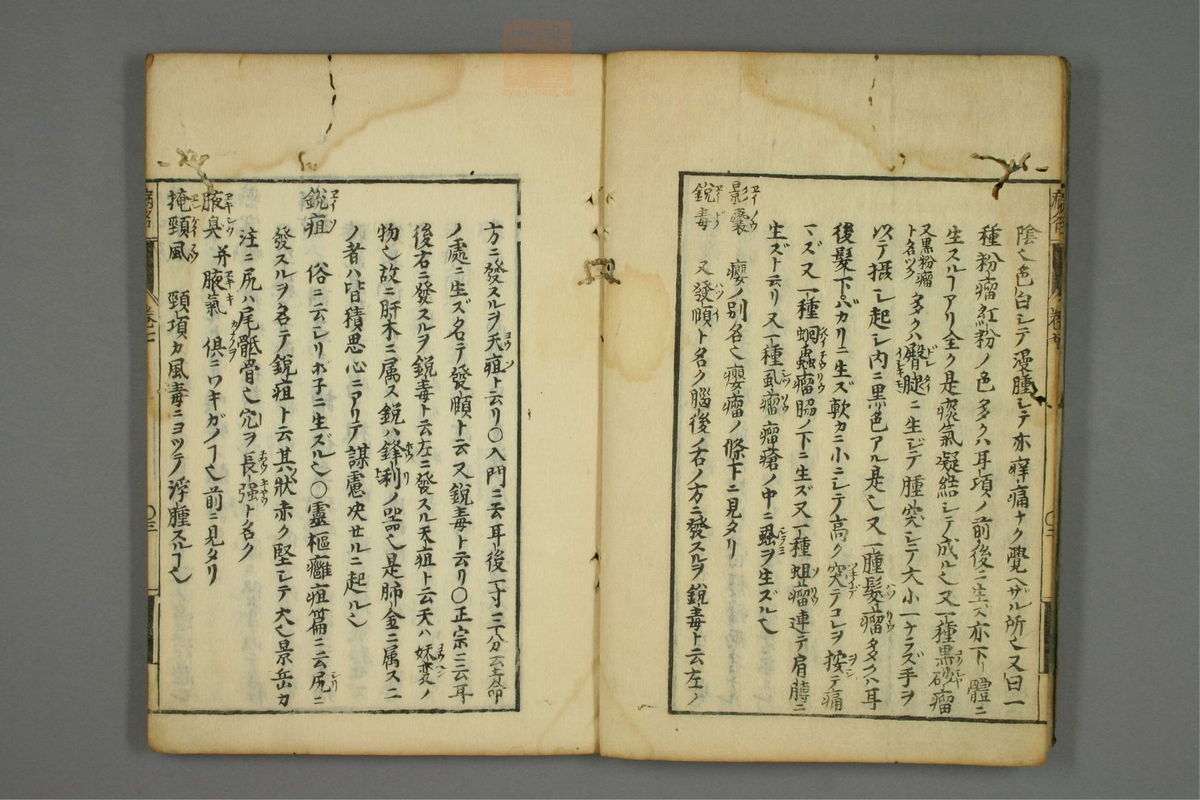 陰ヘ色白シテ漫腫シテ亦痒痛ナク覺ヘザル所也又曰一
種粉瘤紅粉ノ色多クハ耳項ノ前後ニ生ズ亦下リ體ニ
生スルヿアリ全ク是痰氣凝結シテ成ル也又一種黒砂瘤
又黒粉瘤ト名ツク多クハ臀腿ニ生シテ腫突シテ大小一ナラズ手ヲ
以テ攝シ起シ内ニ黒色アル是也又一腫髮瘤多クハ耳
後髮下バカリニ生ズ軟カニ小ニシテ高ク突テコレヲ按テ痛
マズ又一種蛔蟲瘤脇ノ下ニ生ズ又一種蛆瘤連テ肩膊ニ
生ズト云リ又一種虱瘤瘤瘡ノ中ニ蝨ヲ生ズル也
影囊 癭ノ別名也癭瘤ノ條下ニ見タリ
銳毒 又發頤ト名ク腦後ノ右ノ方ニ發スルヲ銳毒ト云左ノ
方ニ發スルヲ天疽ト云リ〇入門ニ云耳後一寸三分
ノ處ニ生ズ名テ發頤ト云又銳毒ト云リ〇正宗ニ云耳
後右ニ發スルヲ銳毒ト云左ニ發スル天疽ト云天ハ妖変ノ
物也故ニ肝木ニ属ス銳ハ鋒利ノ噐也是肺金ニ属ス二
ノ者ハ皆積思心ニアリテ謀慮决セルニ起ル也
銳疽 俗ニ云シリホ子ニ生ズル也〇靈樞癰疽篇ニ云尻ニ
發スルヲ名テ銳疽ト云其狀赤ク堅シテ大也景岳カ
注ニ尻ハ尾骶骨也穴ヲ長強ト名ク
腋臭 并腋氣 俱ニワキガノヿ也前ニ見タリ
掩頸風 頸項カ風毒ニヨツテ浮腫スルヿ也